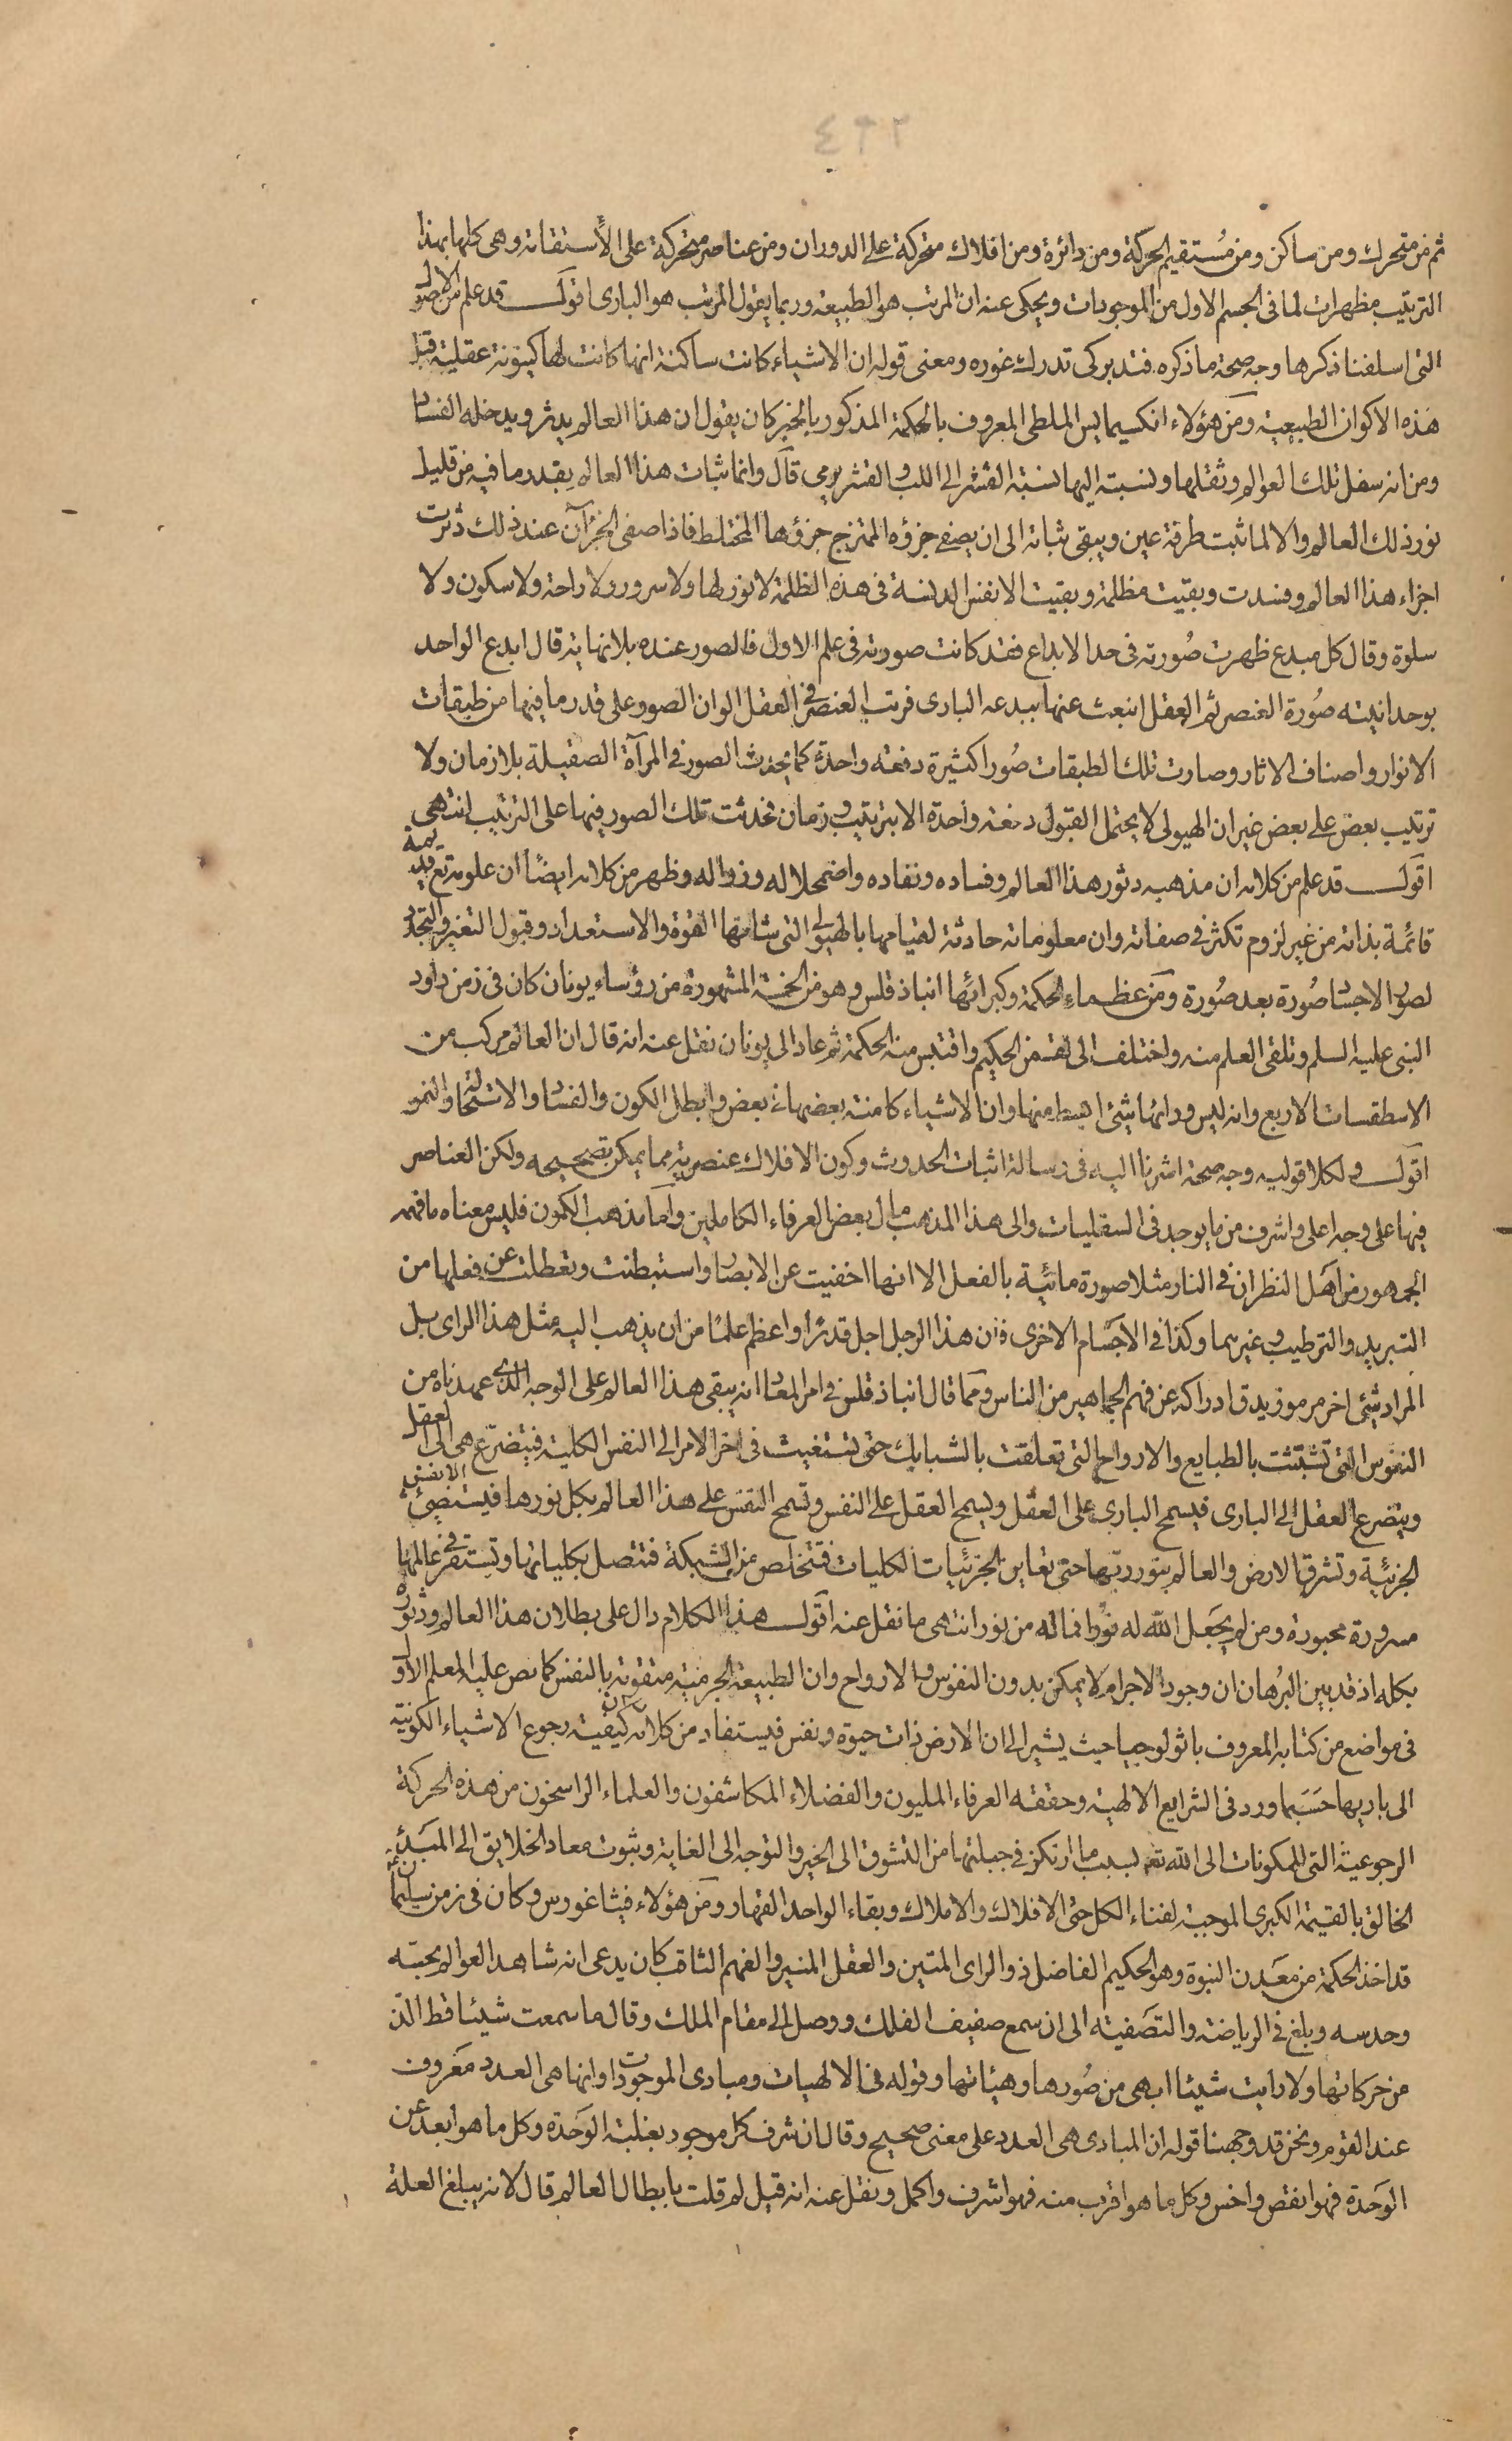 ٤٢٢
ثم من متحرك ومن ساكن ومن مُستقيم الحركة ومن دائرة ومن افلاك متحركة على الدوران ومن عناصر متحركة على الأستقامة وهى كلها بهذا
الترتيب مظهرات لما فى الجسم الاول من الموجودات ويحكى عنه ان المرتب هو الطبيعة وربما يقول المرتب هو البارى اقول قد علم من الاصول
التى اسلفنا ذكرها وجه صحة ما ذكره فتدبر كى تدرك غوره ومعنى قوله ان الاشياء كانت ساكنة انها كانت لها كينونة عقلية قبل
هذه الاكوان الطبيعية ومن هؤلاء انكسيمايس الملطى المعروف بالحكمة المذكور بالخير كان يقول ان هذا العالم يدثر ويدخله الفساد
ومن انه سفل تلك العوالم وثقلها ونسبته اليها نسبة القشر الى اللب والقشر يرمى قال وانما ثبات هذا العالم بقدر ما فيه من قليل
نور ذلك العالم والا لما ثبت طرفة عين ويبقى ثباته الى ان يصفى جزؤه الممتزج جزؤها المختلط فاذا صفى الجزآن عند ذلك دثرت
اجزاء هذا العالم وفسدت وبقيت مظلمة وبقيت الانفس الدنسة فى هذه الظلمة لا نور لها ولا سرور ولا راحة ولا سكون ولا
سلوة وقال كل مبدع ظهرت صُورته فى حد الابداع فقد كانت صورته فى علم الاول فالصور عنده بلا نهاية قال ابدع الواحد
بوحدانيته صُورة العنصر ثم العقل انبعث عنها ببدعه البارى فرتب العنصر فى العقل الوان الصور على قدر ما فيها من طبقات
الانوار واصناف الاثار وصارت تلك الطبقات صُورا كثيرة دفعة واحدة كما يحدث الصور فى المرآة الصقيلة بلا زمان ولا
ترتيب بعض على بعض غير ان الهيولى لا يحتمل القبول دفعة واحدة الا بترتيب وزمان فحدثت تلك الصور فيها على الترتيب انتهى
اقول قد علم من كلامه ان مذهبه دثور هذا العالم وفساده ونفاده واضمحلاله وزواله وظهر من كلامه ايضًا ان علومه تع قديمة
قائمة بذاته من غير لزوم تكثر فى صفاته وان معلوماته حادثة لقيامها بالهيولى التى شانها القوة والاستعداد وقبول التغير والتجدد
لصور الاجسام صُورة بعد صُورة ومن عظماء الحكمة وكبرائها انباذ قلس وهو من الخمسة المشهورة من رؤساء يونان كان فى زمن داود
النبى عليه السلم وتلقى العلم منه واختلف الى لقمن الحكيم واقتبس منه الحكمة ثم عاد الى يونان نقل عنه انه قال ان العالم مركب من
الاسطقسات الاربع وانه ليس ورائها شئ ابسط منها وان الاشياء كامنة بعضها فى بعض وابطل الكون والفساد والاستحالة والنمو
اقول ولكلا قوليه وجه صحة اشرنا اليه فى رسالة اثبات الحدوث وكون الافلاك عنصرية مما يمكن تصحيحه ولكن العناصر
فيها على وجه اعلى واشرف من ما يوجد فى السفليات والى هذا المذهب مال بعض العرفاء الكاملين واما مذهب الكمون فليس معناه ما فهمه
الجمهور من اهل النظر ان فى النار مثلا صورة مائية بالفعل الا انها اخفيت عن الابصار واستبطنت وتعطلت عن فعلها من
التبريد والترطيب وغيرهما وكذا فى الاجسام الاخرى فان هذا الرجل اجل قدرًا واعظم علمًا من ان يذهب اليه مثل هذا الراى بل
المراد شئ اخر مرموز يدق ادراكه عن فهم الجماهير من الناس ومما قال انباذ قلس فى امر المعاد انه يبقى هذا العالم على الوجه الذى عهدناه من
النفوس التى تشبثت بالطبايع والارواح التى تعلقت بالشبايك حتى تستغيث فى اخر الامر الى النفس الكلية فيتضرع هى الى العقل
ويتضرع العقل الى البارى فيسمح البارى على العقل ويسمح العقل على النفس وتسمح النفس على هذا العالم بكل نورها فيستضئ الانفس
الجزئية وتشرق الارض والعالم بنور ربها حتى تعاين الجزئيات الكليات فتتخلص من الشبكة فتتصل بكلياتها وتستقر فى عالمها
مسرورة محبورة ومن لم يجعل الله له نورا فما له من نور انتهى ما نقل عنه اقول هذا الكلام دال على بطلان هذا العالم ودثوره
بكله اذ قد بين البرهان ان وجود الاجرام لا يمكن بدون النفوس والارواح وان الطبيعة الجرمية متقومة بالنفس كما نص عليه المعلم الاول
فى مواضع من كتابه المعروف باثولوجيا حيث يشير الى ان الارض ذات حيوة ونفس فيستفاد من كلامه كيفية رجوع الاشياء الكونية
الى باريها حسبما ورد فى الشرايع الالهية وحققه العرفاء المليون والفضلاء المكاشفون والعلماء الراسخون من هذه الحركة
الرجوعية التى للمكونات الى الله تعه لسبب ما ارتكز فى جبلتها من التشوق الى الخير والتوجه الى الغاية وثبوت معاد الخلايق الى المبدئه
الخالق بالقيمة الكبرى الموجبة لفناء الكل حتى الافلاك والاملاك وبقاء الواحد القهار ومن هؤلاء فيثاغورس وكان فى زمن سليمان
قد اخذ الحكمة من معدن النبوة وهو الحكيم الفاضل ذو الراى المتين والعقل المنير والفهم الثاقب كان يدعى انه شاهد العوالم بحسه
وحدسه وبلغ فى الرياضة والتصفية الى ان سمع صفيف الفلك ووصل الى مقام الملك وقال ما سمعت شيئا قط الذ
من حركاتها ولا رايت شيئا ابهى من صُورها وهيئاتها وقوله فى الالهيات ومبادى الموجودات وانها هى العدد معروف
عند القوم ونحن قد وجهنا قوله ان المبادى هى العدد على معنى صحيح وقال ان شرف كل موجود بغلبة الوحدة وكل ما هو ابعد عن
الوحدة فهو انقص واخس وكل ما هو اقرب منه فهو اشرف واكمل ونقل عنه انه قيل لم قلت بابطال العالم قال لانه يبلغ العلة